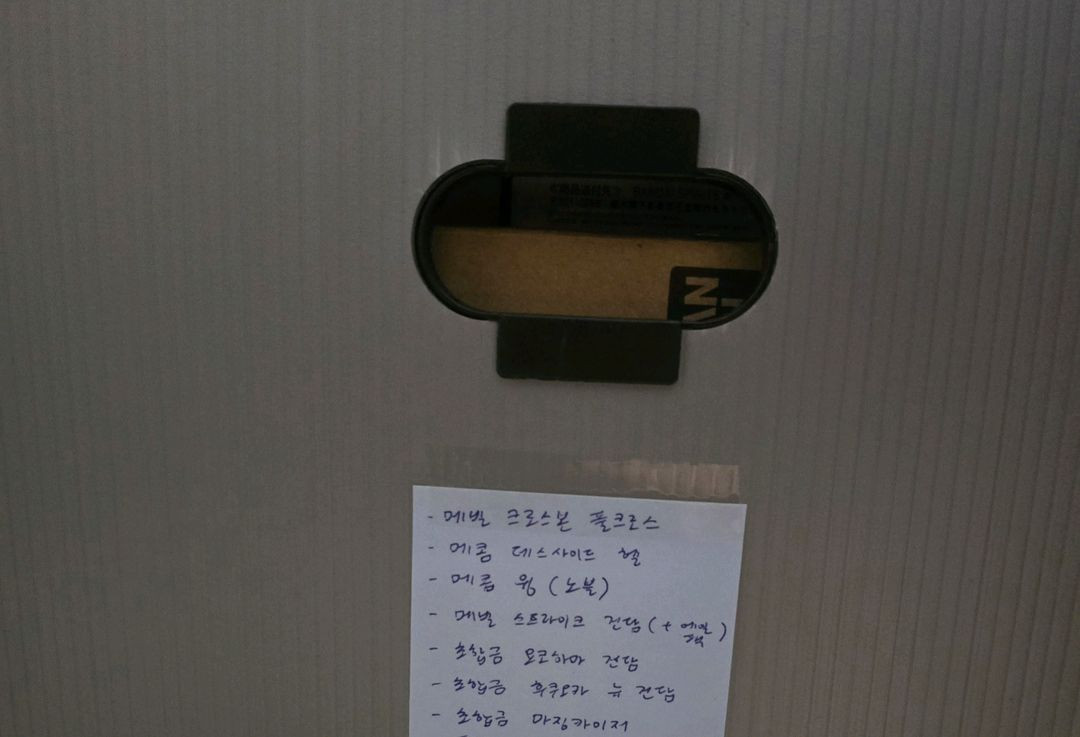 N
- 메빌 크로스본 풀크로스
- 메콤 데스사이드 헬
- 메콤 윙 (노블)
- 메빌 스트라이크 건담 (+ 에일팩)
- 초합금 요코하마 건담
- 초합금 후쿠오카 뉴 건담
- 초합금 마징카이저